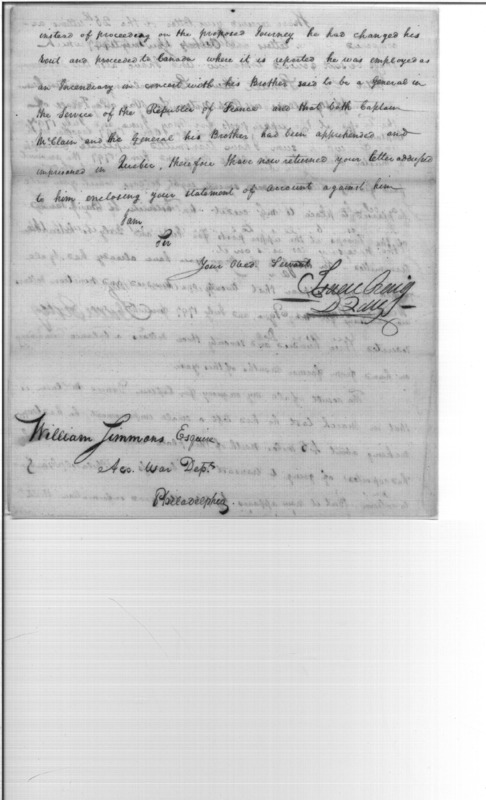 instead of proceeding on the proposed Journey he had changed his
rout and proceeded to Canada where it is reported he was employed as
an Incendiary in concert with his Brother said to be a General in
the Service of the Republic of France and that both Captain
McClain and the General his Brother had been apprehended and
imprisoned in Quebec, therefore I have now returned your letter addressed
to him enclosing your statement of account against him
I am
Sir
Your Obed. Servant
Isaac Craig
D Q M G
William Simmons, Esquire
Acc. War Dept.
Philadelphia.